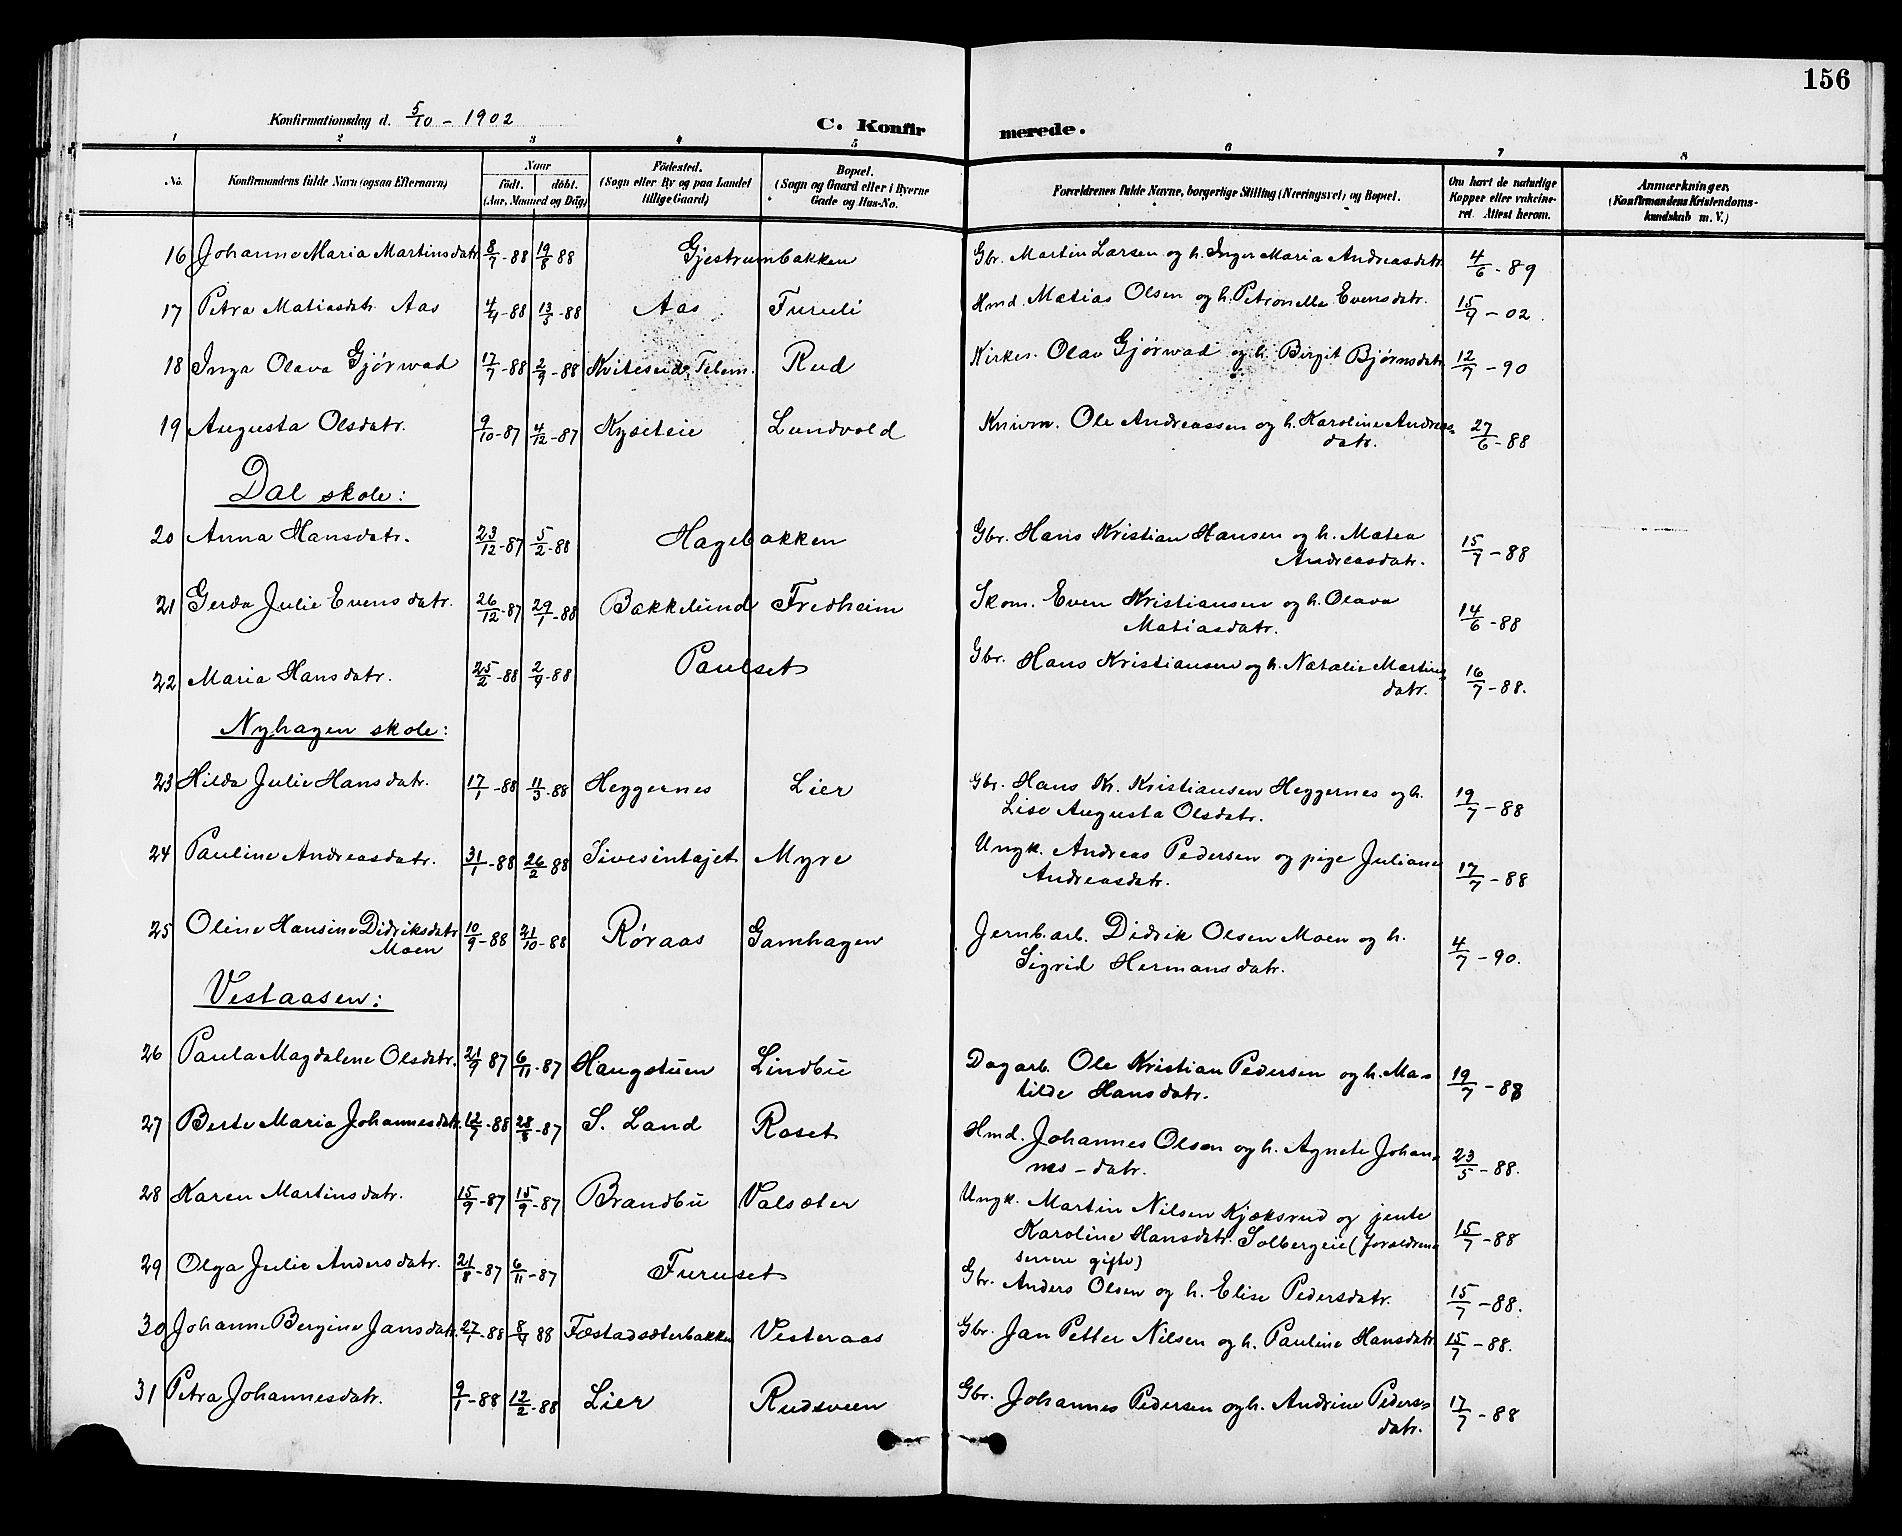 156
Konfirmationsdag d. 5/10 - 1902
C. Konfirmerede.
1 2 3 4 5 6 7 8
No. Konfirmandens fulde Navn (ogsaa Efternavn) Naar födt. döbt. (Aar, Maaned og Dag) Födested. (Sogn eller By og paa Landet tillige Gaard) Bopæl. (Sogn og Gaard eller i Byerne Gade og Hus-No. Forældrenes fulde Navne, borgerlige Stilling (Næringsvei) og Bopæl. Om havt de naturlige Kopper eller vaccineret. Attest herom. Anmærkninger. (Konfirmandens Kristendomskundskab m. V.)
16 Johanne Maria Martinsdatr. 8/7-88 19/8 88 Gjestrumbakken Gbr. Martin Larsen og h. Inger Maria Andreasdatr. 4/6-89
17 Petra Matiasdatr. Aas 4/4-88 13/5-88 Aas Furuli Hmd. Matias Olsen og h. Petronelle Evensdatr. 15/9-02.
18 Inga Olava Gjørwad 17/7-88 2/9-88 Kviteseid, Telem. Rud Kirkes. Olav Gjørwad og h. Birgit Bjørnsdatr. 12/7-90
19 Augusta Olsdatr. 9/10-87 4/12-87 Kyseteie Lundvold Knivm. Ole Andreassen og h. Karoline Andreas-
datr. 27/6-88
Dal skole:
20 Anna Hansdatr. 23/12-87 5/2-88 Hagebakken Gbr. Hans Kristian Hansen og h. Matea
Andreasdatr. 15/7-88
21 Gerda Julie Evensdatr. 26/12-87 29/1-88 Bakkelund Fredheim Skom. Even Kristiansen og h. Olava
Matiasdatr. 14/6-88
22 Maria Hansdatr. 25/2-88 2/4-88 Paulset Gbr. Hans Kristiansen og h. Natalie Martins-
datr. 16/7-88.
Nyhagen skole:
23 Hilda Julie Hansdatr. 17/1-88 11/3-88 Heggernes Lier Gbr. Hans Kr. Kristiansen Heggernes og h.
Lise Augusta Olsdatr. 19/7-88
24 Pauline Andreasdatr. 31/1-88 26/2 88 Sivesintajet Myre Ungk. Andreas Pedersen og pige Juliane
Andreasdatr. 17/7-88
25 Oline Hansine Didriksdatr.
Moen 10/9-88 21/10-88 Røraas Gamhagen Jernb.arb. Didrik Olsen Moen og h.
Sigrid Hermansdatr. 4/7-90.
Vestaasen:
26 Paula Magdalene Olsdatr. 21/9 87 6/11-87 Haugstuen Lindbu Dagarb. Ole Kristian Pedersen og h. Ma-
tilde Hansdatr. 19/7-88
27 Berte Maria Johannesdatr. 12/7-88 28/8-87 S. Land Roset Hmd. Johannes Olsen og h. Agnete Johan-
nes-datr. 23/5-88.
28 Karen Martinsdatr. 15/9-87 15/9-87 Brandbu Valsæter Ungk. Martin Nilsen Kjæksrud og jente
Karoline Hansdatr. Solbergeie (foreldrene
senere gifte) 15/7-88
29 Olga Julie Andersdatr. 21/8-87 6/11-87 Furuset Gbr. Anders Olsen og h. Elise Pedersdatr. 15/7-88.
30 Johanne Bergine Jansdatr. 27/1-88 8/4 88 Fæstadsæterbakken Vesteraas Gbr. Jan Petter Nilsen og h. Pauline Hansdatr. 15/7-88.
31 Petra Johannesdatr. 9/1-88 12/2-88 Lier Rudsveen Gbr. Johannes Pedersen og h. Andrine Peders-
datr. 17/7-88